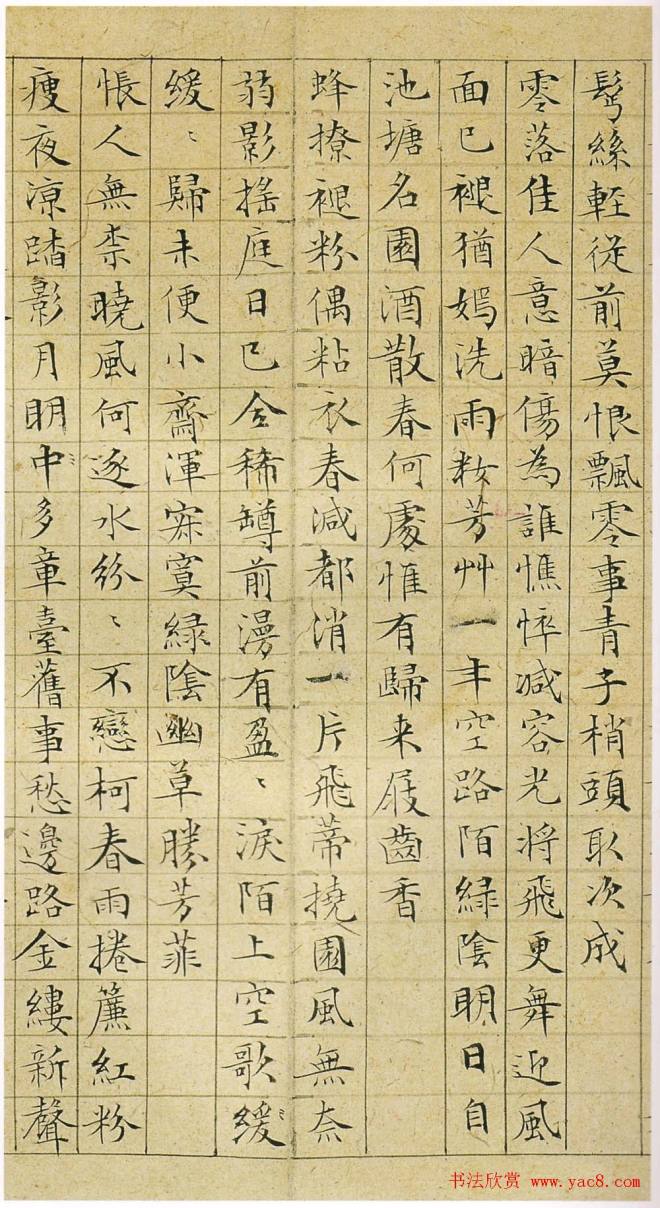 髩絲輕從前莫恨飄零事青子梢頭取次成
零落佳人意暗傷為誰憔悴減容光將飛更舞迎風
面已褪猶嫣洗雨妝芳艸一年空路陌綠陰明日自
池塘名園酒散春何處惟有歸来屐齒香
蜂撩褪粉偶粘衣春減都消一片飛蒂撓園風無奈
弱影搖庭日已全稀罇前漫有盈〻淚陌上空歌緩
緩〻歸未便小齋渾寂寞綠陰幽草勝芳菲
悵人無柰曉風何逐水紛〻不戀柯春雨捲簾紅粉
瘦夜凉踏影月明中多章臺舊事愁邊路金縷新聲
书法欣赏 www.yac8.com